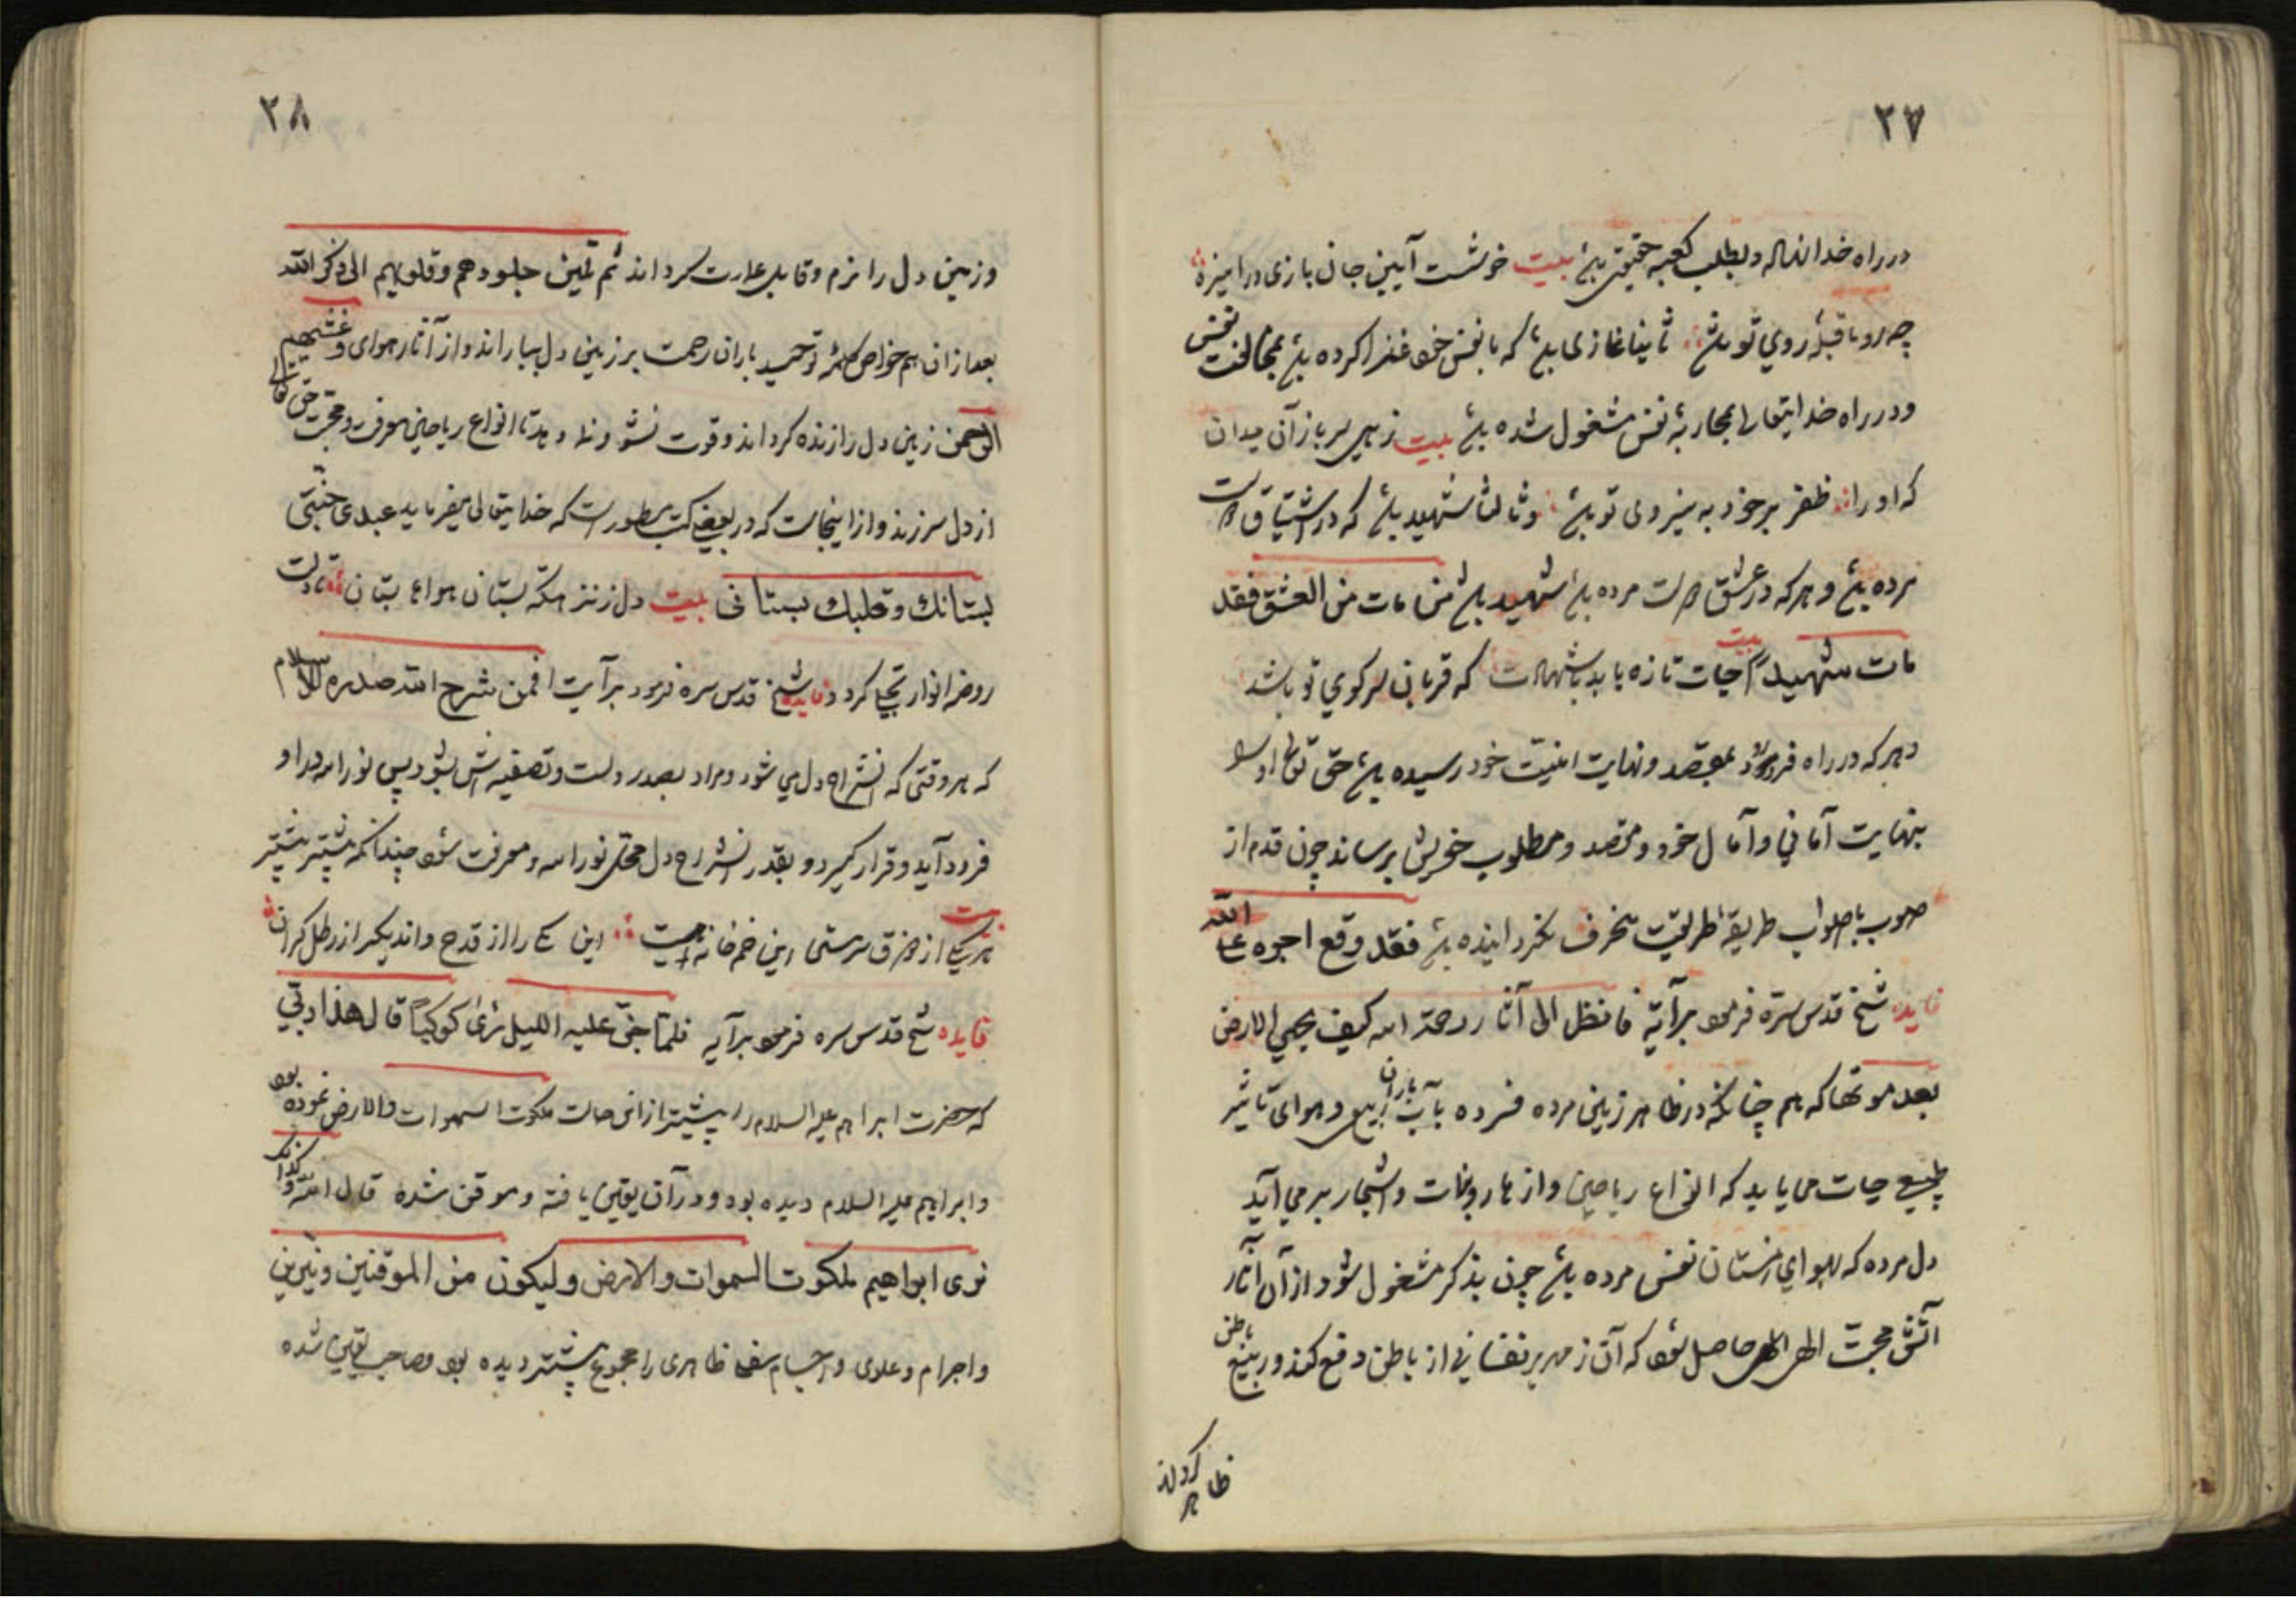 ۲۷
در راه خدا نهاده و بطلب کعبه حقیقی باشد بیت خوشست آیین جان بازی در آمیزه
چه رو با قبلهٔ روی تو باشد ثانیا غازی باید که با نفس خود غزا کرده باشد بمخالفت نفس
و در راه خدایتعالی بمحاربهٔ نفس مشغول شده باشد بیت زهی سرباز آن میدان
که او را ظفر بر خود به نیروی تو باشد و ثالثا شهید باشد که در اشتیاق دوست
مرده باشد و هر که در عشق دوست مرده باشد شهید باشد من مات من العشق فقد
مات شهیداً بیت حیات تازه یابد با شهادت که قربان سر کوی تو باشد
و هر که در راه فرو رود بمقصد و نهایت امنیت خود رسیده باشد حق تعالی او را
بنهایت آمانی و آمال خود و مقصد و مطلوب خویش برساند چون قدم از
صوب با صواب طریقهٔ طریقت منحرف نگردانیده باشد فقد وقع اجره علی الله
فایده شیخ قدس سرّه فرمود بر آیه فانظر الی آثار رحمة الله کیف یحیی الارض
بعد موتها که هم چنانکه در ظاهر زمین مرده فسرده بآب باران ربیع و هوای تأثیر
طبیعی حیات می یابد که انواع ریاحین و ازهار و نبات و اشجار بر می آید
دل مرده که بهوای زمستان نفس مرده باشد چون بذکر مشغول شود از آن آثار
آتش محبت الهی حاصل شود که آن زمهریر نفسانی از باطن دفع کند و ربیع باطن
ظاهر گرداند
۲۸
و زمین دل را نرم و قابل عمارت گرداند ثم تلین جلودهم و قلوبهم الی ذکر الله
بعد از آن هم خواص کلمهٔ توحید باران رحمت بر زمین دل بباراند و از آثار هوای و غشیهم
الرحمن زمین دل را زنده گرداند و قوت نشو و نما دهد تا انواع ریاحین معرفت و محبت حق تعالی
از دل سر زند و از اینجاست که در بعضی کتب مسطورست که خدایتعالی میفرماید عبدی جنتی
بستانک و قلبک بستانی بیت دل زنزهتکه بستان هواء بتان تا دلت
روضه انوار تجلی کردد فایده شیخ قدس سره فرمود بر آیت افمن شرح الله صدره للاسلام
که هر وقتی که انشراح دل می شود و مراد بصدر دلست و تصفیه اش بشود پس نور الله در او
فرود آید و قرار گیرد و بقدر انشراح دل محل نور الله و معرفت شود چندانکه بیشتر بیشتر
بیت هر یکی از ذوق سرمستی این خمخانه است این یکی را از قدح و اندیگر از رطل گران
فایده شیخ قدس سره فرمود بر آیه فلمّا جنّ علیه اللیل رأی کوکباً قال هذا ربّی
که حضرت ابراهیم علیه السلام را پیشتر از این حالت ملکوت السموات والارض نموده بود
و ابراهیم علیه السلام دیده بود و در آن یقین یافته و موقن شده قال الله و کذلک
نری ابراهیم ملکوت السموات والارض و لیکون من الموقنین و نیرین
و اجرام و علوی و اجسام سفلی ظاهری را مجموع پیشتر دیده بود و صاحب یقین شده